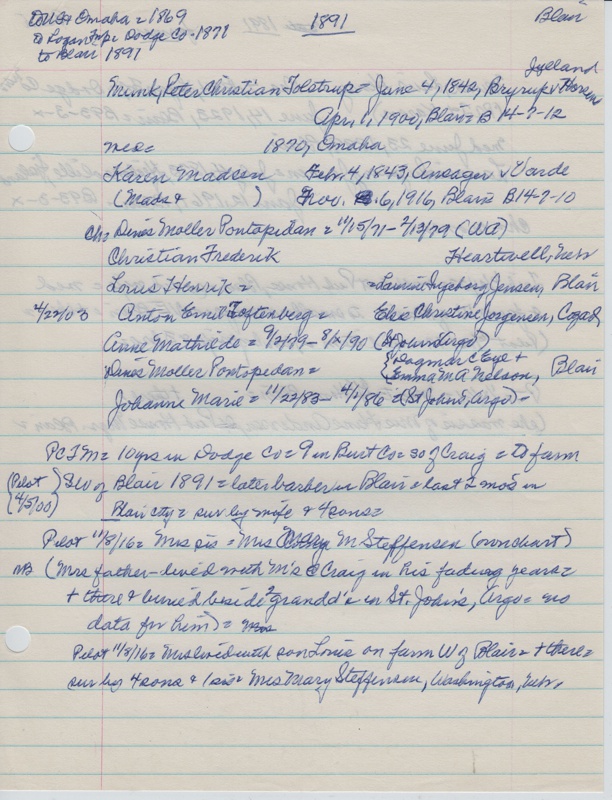 to US & Omaha = 1869
to Logan Twp. Dodge Co. 1871
to Blair 1891
1891
Blair
Jylland
Munk, Peter Christian Tolstrup = June 4, 1842, Bryrup v Horsens
April 1, 1900, Blair = B 14-7-12
m = 1870, Omaha
Karen Madsen Febr. 4, 1843, Ansager v Varde
(Mads & ) Nov. 6, 1916, Blair B 14-7-10
Ch = Denis Moller Pontopidan = 11/15/71 - 2/13/79 (WA)
Christian Frederik Heartwell, Nebr
Louis Henrik = = Laurine Ingeborg Jensen, Blair
4/22/03 Anton Emil Toftenberg = Elsie Christine Jorgensen, Cozad
Anne Mathilde = 9/2/79 - 8/2/90 (St Johns Argo)
Denis Moller Pontopidan = { 1 Dagmar C Eye +
2 Emma M A Nelson, Blair
Johanne Marie = 11/22/83 - 4/1/86 = (St Johns, Argo) =
PCTM = 10 yrs in Dodge Co = 9 in Burt Co = SO of Craig = to farm
(Pilot 4/5/00) SW of Blair 1891 = later barber in Blair = last 2 mos in
Blair city = sur by wife & 4 sons =
Pilot 11/8/16 = Mrs sis = Mrs Mary M Steffensen (own chart)
NB (Mrs father - lived with M's @ Craig in his fading years =
+ there & buried beside 2 grandd's in St. John's, Argo = no
data for him) =
Pilot 11/8/16 = Mrs lived with son Louis on farm W of Blair = + there =
sur by 4 sons & 1 sis = Mrs Mary Steffensen, Washington, Nebr.